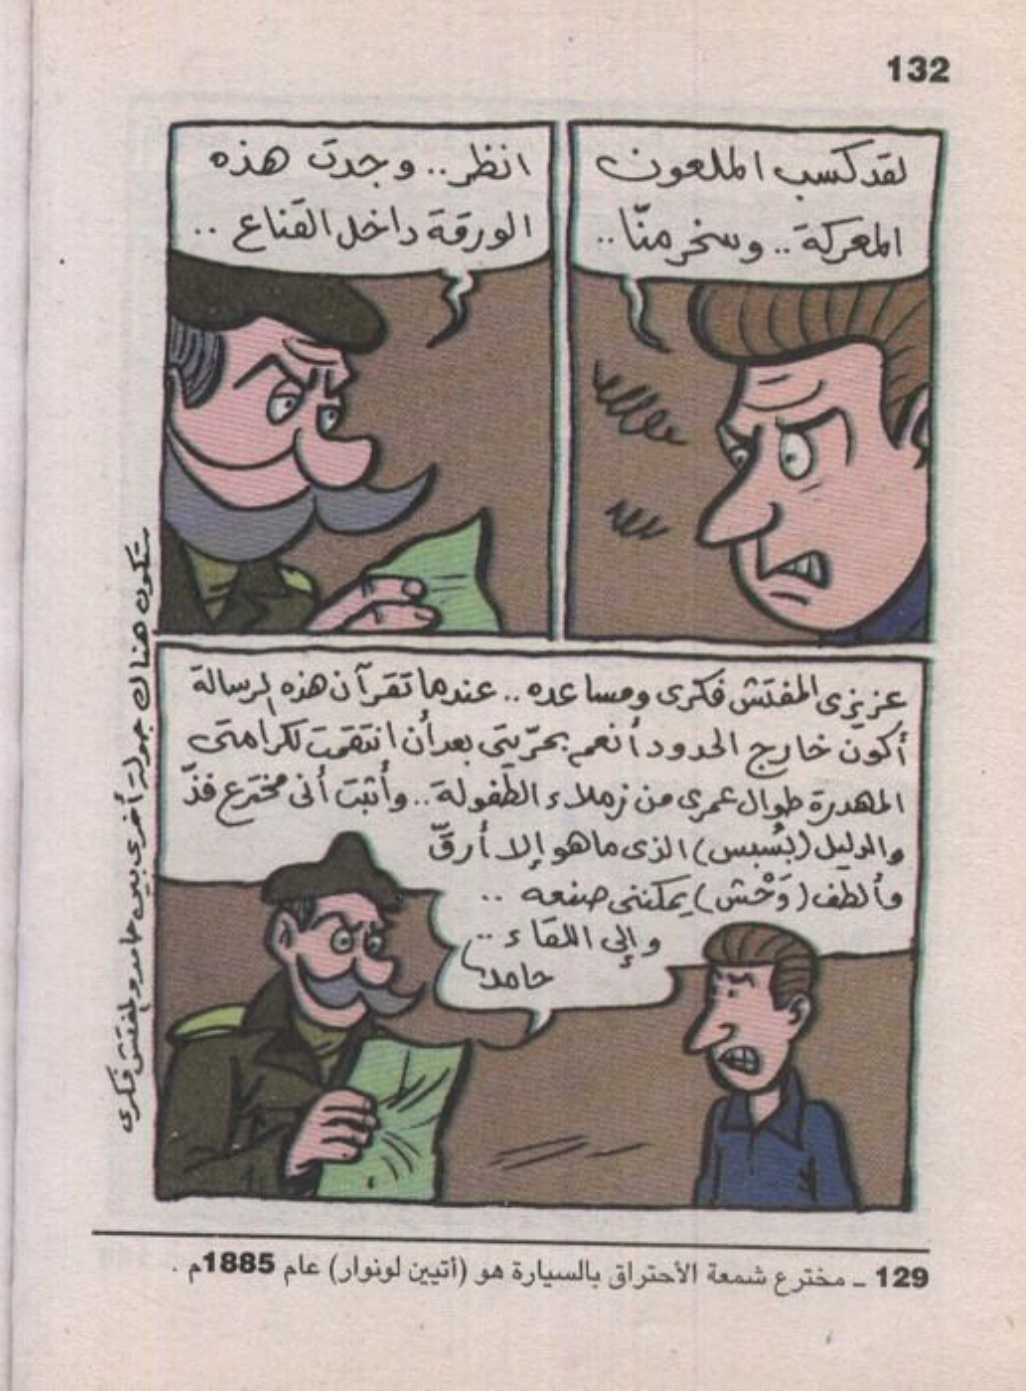 132
لقد كسب الملعون
المعركة.. وسخر منّا..
انظر.. وجدت هذه
الورقة داخل القناع ..
عزيزى المفتش فكرى ومساعده .. عندما تقرآن هذه الرسالة
أكون خارج الحدود أنعم بحرّيتى بعد أن انتقمت لكرامتى
المهدرة طوال عمرى من زملاء الطفولة .. وأثبت أنى مخترع فذّ
والدليل (بُسبس) الذى ما هو إلا أرقّ
وألطف (وَحْش) يمكننى صنعه ..
وإلى اللقاء ..
حامد
ستكون هناك جولة أخرى بين حامد والمفتش فكرى
129 ـ مخترع شمعة الأحتراق بالسيارة هو (أتيين لونوار) عام 1885م .